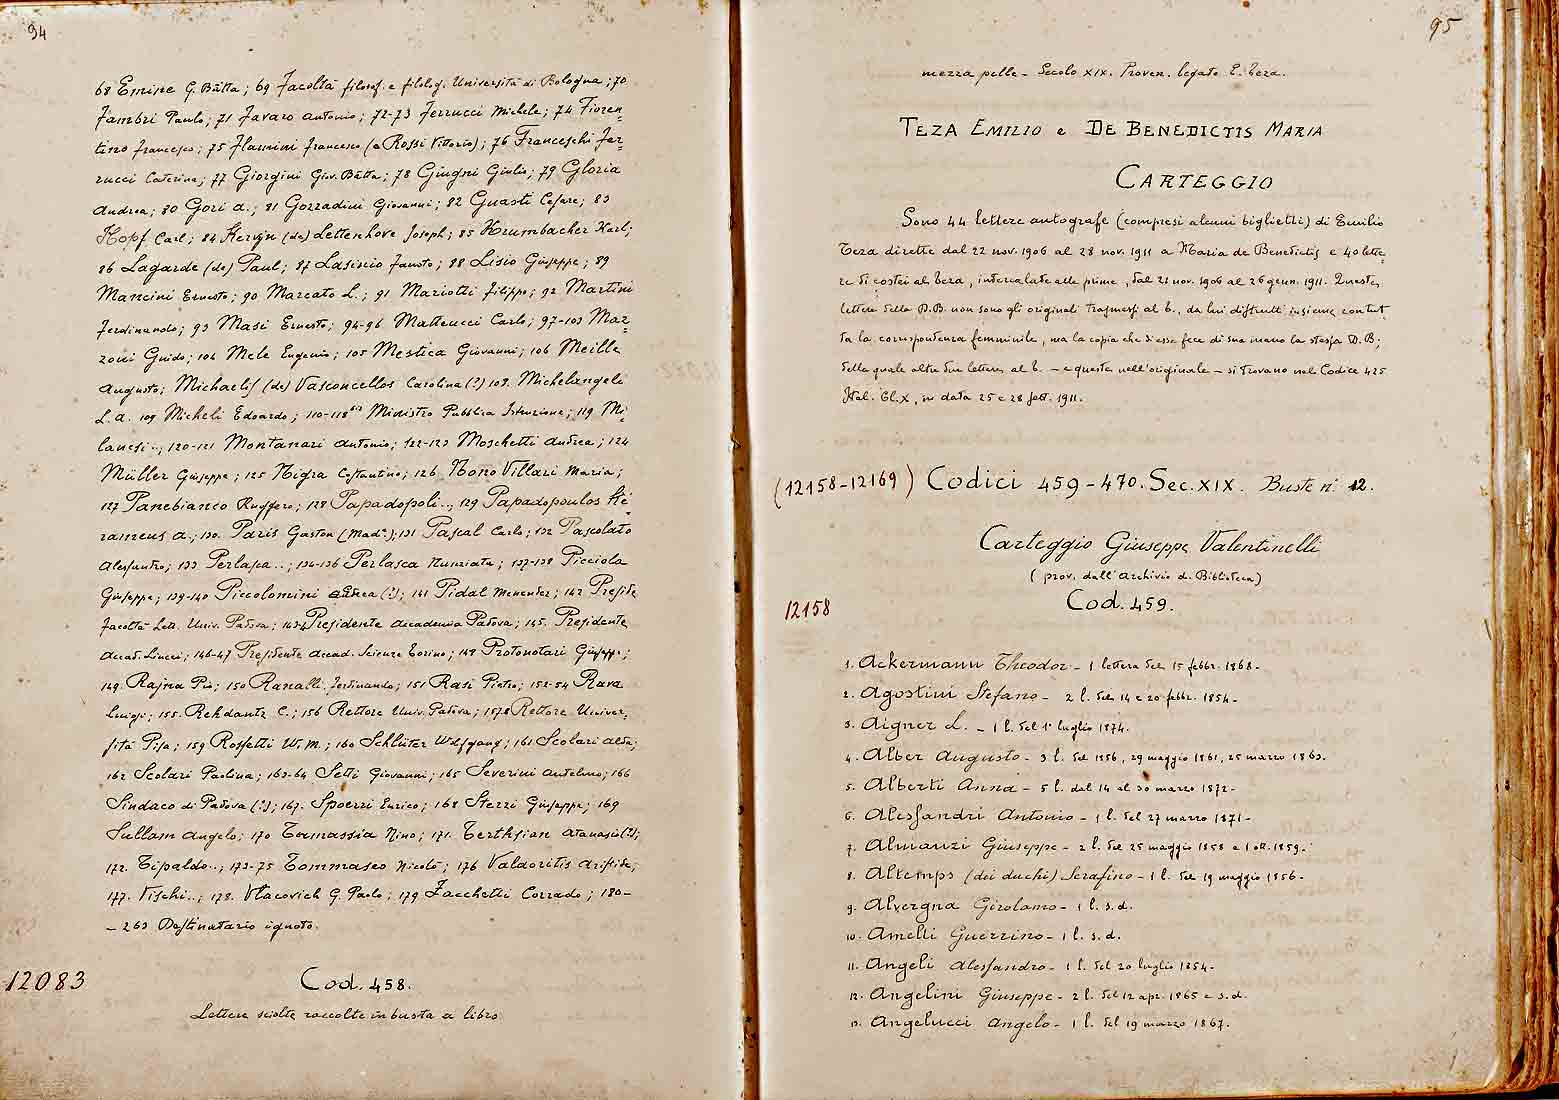 94
68 Emine G. Bãtta; 69 Facoltà filosof. e filolog. Università di Bologna; 70
Fambri Paulo; 71 Favaro Antonio; 72-73 Ferrucci Michele; 74 Fioren-
tino Francesco; 75 Flamini Francesco (a Rossi Vittorio); 76 Franceschi Fer-
rucci Caterina; 77 Giorgini Giov. Bãtta; 78 Giugni Giulio; 79 Gloria
Andrea; 80 Gori A.; 81 Gozzadini Giovanni; 82 Guasti Cesare; 83
Hopf Carl; 84 Kervyn (de) Lettenhove Joseph; 85 Krumbacher Karl;
86 Lagarde (de) Paul; 87 Lasinio Fausto; 88 Lisio Giuseppe; 89
Mancini Ernesto; 90 Marcato L.; 91 Mariotti Filippo; 92 Martini
Ferdinando; 93 Masi Ernesto; 94-96 Matteucci Carlo; 97-103 Maz-
zoni Guido; 104 Mele Eugenio; 105 Mestica Giovanni; 106 Meille
Augusto; Michaelis (de) Vasconcellos Carolina (?) 108. Michelangeli
L. A. 109 Micheli Edoardo; 110-118bis Ministro Pubblica Istruzione; 119 Mi-
lanesi ..; 120-121 Montanari Antonio; 122-123 Moschetti Andrea; 124
Müller Giuseppe; 125 Nigra Costantino; 126 Nono Villari Maria;
127 Panebianco Ruggero; 128 Papadopoli ..; 129 Papadopoulos Ke-
rameus A.; 130. Paris Gaston (Mad.e); 131 Pascal Carlo; 132 Pascolato
Alessandro; 133 Perlasca ..; 134-136 Perlasca Nunziata; 137-138 Picciola
Giuseppe; 139-140 Piccolomini Andrea (?); 141 Pidal Menendez; 142 Preside
Facoltà Lett. Univ. Padova; 143-4 Presidente Accademia Padova; 145. Presidente
Accad. Lincei; 146-47 Presidente Accad. Scienze Torino; 148 Protonotari Giuseppe;
149. Rajna Pio; 150 Ranalli Ferdinando; 151 Rasi Pietro; 152-54 Rava
Luigi; 155. Rehdantz C.; 156 Rettore Univ. Padova; 157-8 Rettore Univer-
sità Pisa; 159 Rossetti W. M.; 160 Schlüter Wolfgang; 161 Scolari Alda;
162 Scolari Paolina; 163-64 Setti Giovanni; 165 Severini Antelmo; 166
Sindaco di Padova (?); 167. Spoerri Enrico; 168 Stezzi Giuseppe; 169
Sullam Angelo; 170 Tamassia Nino; 171. Terthsian Atanasio (?);
172. Tipaldo ..; 173-75 Tommaseo Nicolò; 176 Valaoritis Aristide;
177. Vischi ..; 178. Vlacovich G. Paolo; 179 Zacchetti Corrado; 180-
- 263 Destinatario ignoto.
12083
Cod. 458.
Lettere sciolte raccolte in busta a libro
95
mezza pelle - Secolo XIX. Proven. legato E. Teza.
TEZA EMILIO e DE BENEDICTIS MARIA
CARTEGGIO
Sono 44 lettere autografe (compresi alcuni biglietti) di Emilio
Teza dirette dal 22 nov. 1906 al 28 nov. 1911 a Maria de Benedictis e 40 lette-
re di costei al Teza, intercalate alle prime, dal 21 nov. 1906 al 26 genn. 1911. Queste
lettere della D.B. non sono gli originali trasmessi al T., da lui distrutti insieme con tut
ta la corrispondenza femminile, ma la copia che d'esse fece di sua mano la stessa D.B;
della quale altre due lettere al T. - e queste nell'originale - si trovano nel Codice 425
Ital. Cl. X, in data 25 e 28 sett. 1911.
(12158-12169) Codici 459-470. Sec. XIX. Buste n. 12.
Carteggio Giuseppe Valentinelli
(prov. dall'Archivio d. Biblioteca)
12158
Cod. 459.
1. Ackermann Theodor - 1 lettera del 15 febbr. 1868.
2. Agostini Stefano - 2 l. del 14 e 20 febbr. 1854.
3. Aigner L. - 1 l. del 1° luglio 1874.
4. Alber Augusto - 3 l. del 1856, 29 maggio 1861, 25 marzo 1863.
5. Alberti Anna - 5 l. dal 14 al 30 marzo 1872-
6. Alessandri Antonio - 1 l. del 27 marzo 1871-
7. Almanzi Giuseppe - 2 l. del 25 maggio 1858 e 1 ott. 1859.
8. Altemps (dei duchi) Serafino - 1 l. del 19 maggio 1856-
9. Alvergna Girolamo - 1 l. s.d.
10. Amelli Guerrino - 1 l. s.d.
11. Angeli Alessandro - 1 l. del 20 luglio 1854-
12. Angelini Giuseppe - 2 l. del 12 apr. 1865 e s.d.
13. Angelucci Angelo - 1 l. del 19 marzo 1867.